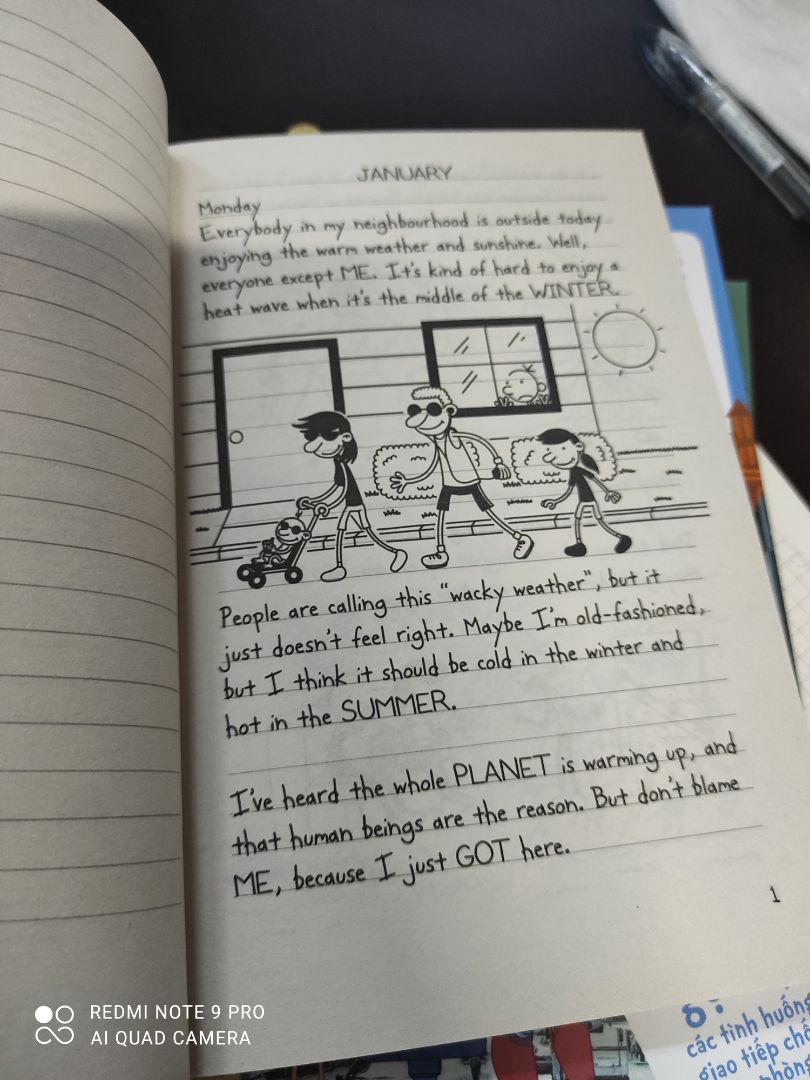 JANUARY
Monday
Everybody in my neighbourhood is outside today
enjoying the warm weather and sunshine. Well,
everyone except ME. It's kind of hard to enjoy a
heat wave when it's the middle of the WINTER.
People are calling this "wacky weather", but it
just doesn't feel right. Maybe I'm old-fashioned,
but I think it should be cold in the winter and
hot in the SUMMER.
I've heard the whole PLANET is warming up, and
that human beings are the reason. But don't blame
ME, because I just GOT here.
1
các tình huống
giao tiếp
REDMI NOTE 9 PRO
AI QUAD CAMERA